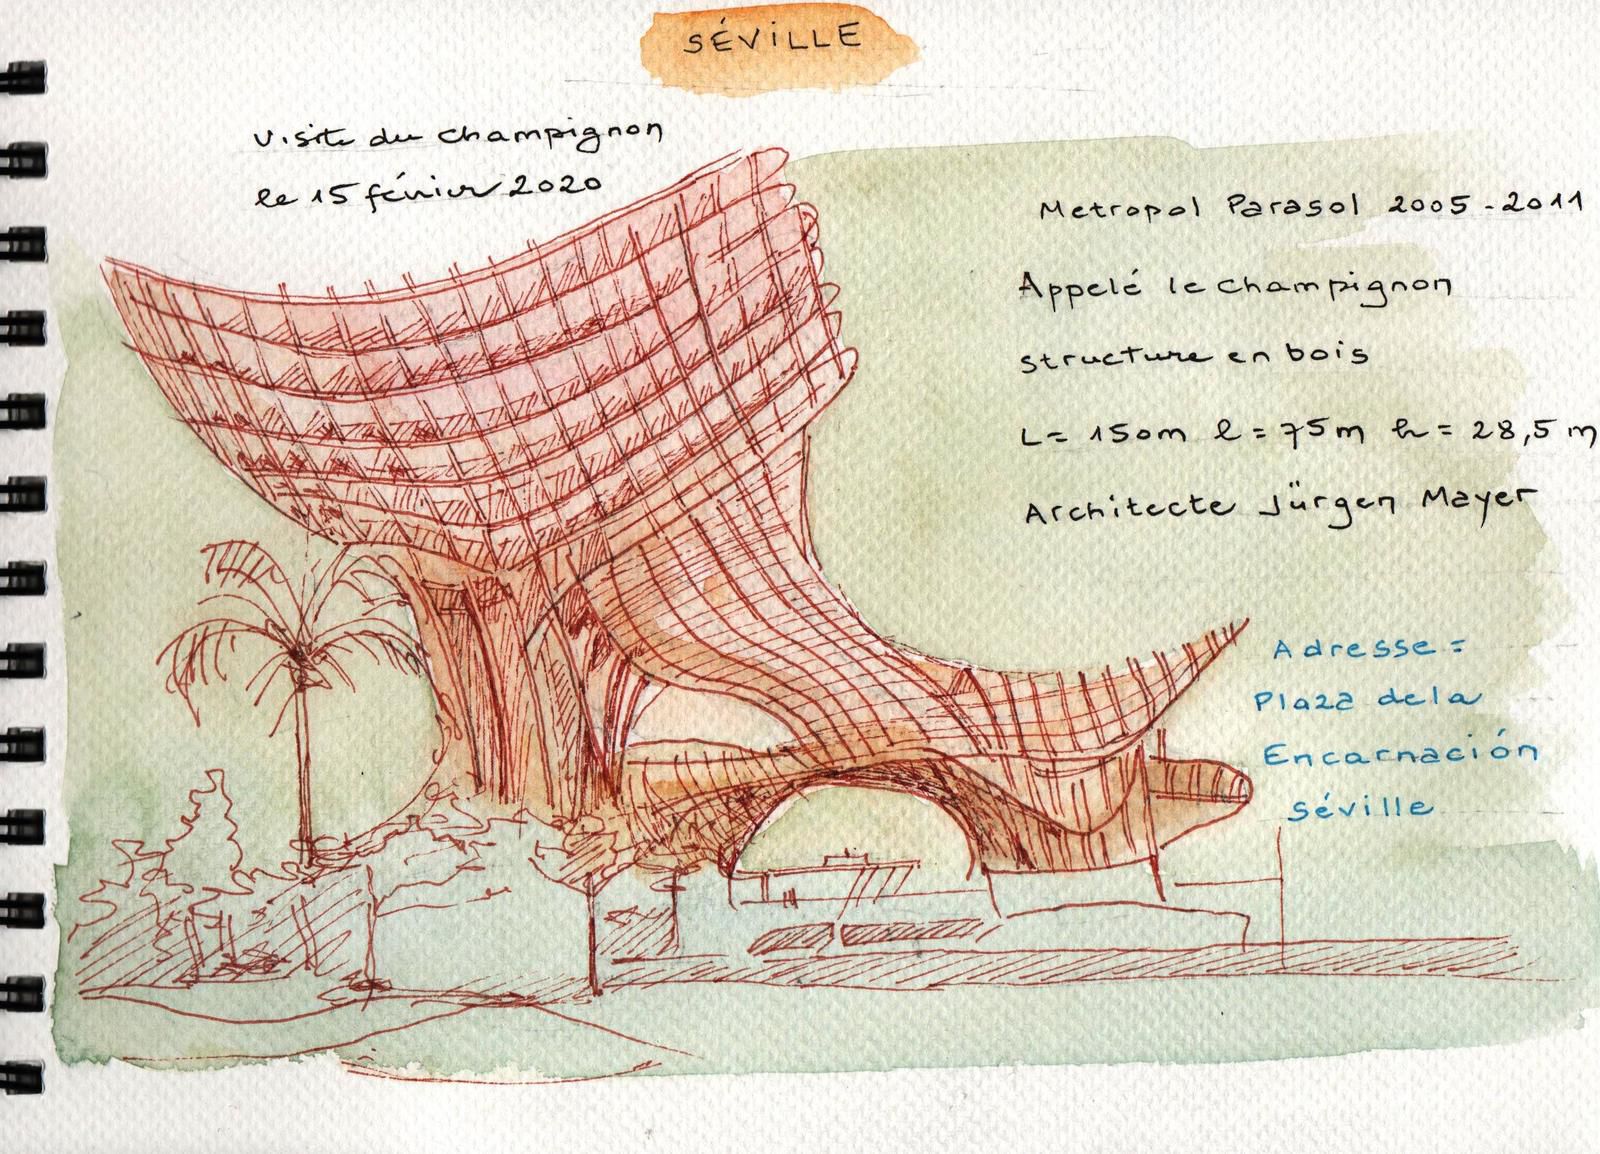 SÉVILLE
Visite du champignon
le 15 février 2020
Metropol Parasol 2005-2011
Appelé le champignon
structure en bois
L= 150m l=75m h=28,5m
Architecte Jürgen Mayer
Adresse =
Plaza de la
Encarnación
Séville